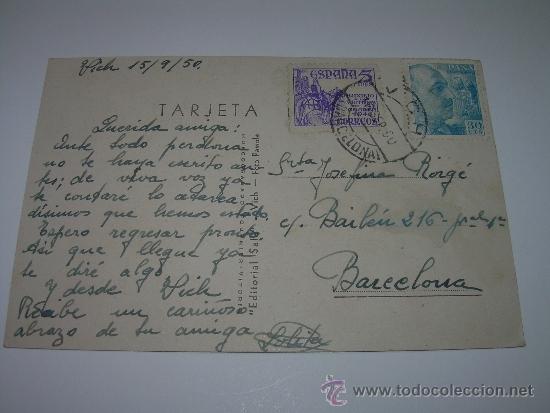 Vich 15/9/50.
TARJETA
Querida amiga:
Ante todo perdona
no te haya escrito an-
tes; de viva voz ya
te contaré lo atarea-
dísimos que hemos estado.
Espero regresar pronto
Así que llegue ya
te diré algo
Y desde Vich
Recibe un cariñoso
abrazo de tu amiga
Lolita
"Editorial
Vich — Foto
ESPAÑA 5
CORREOS
ESPAÑA
30
Srta Josefina Roigé
c/. Bailén 216-pral-1ª
Barcelona
todocoleccion.net
www.todocoleccion.net